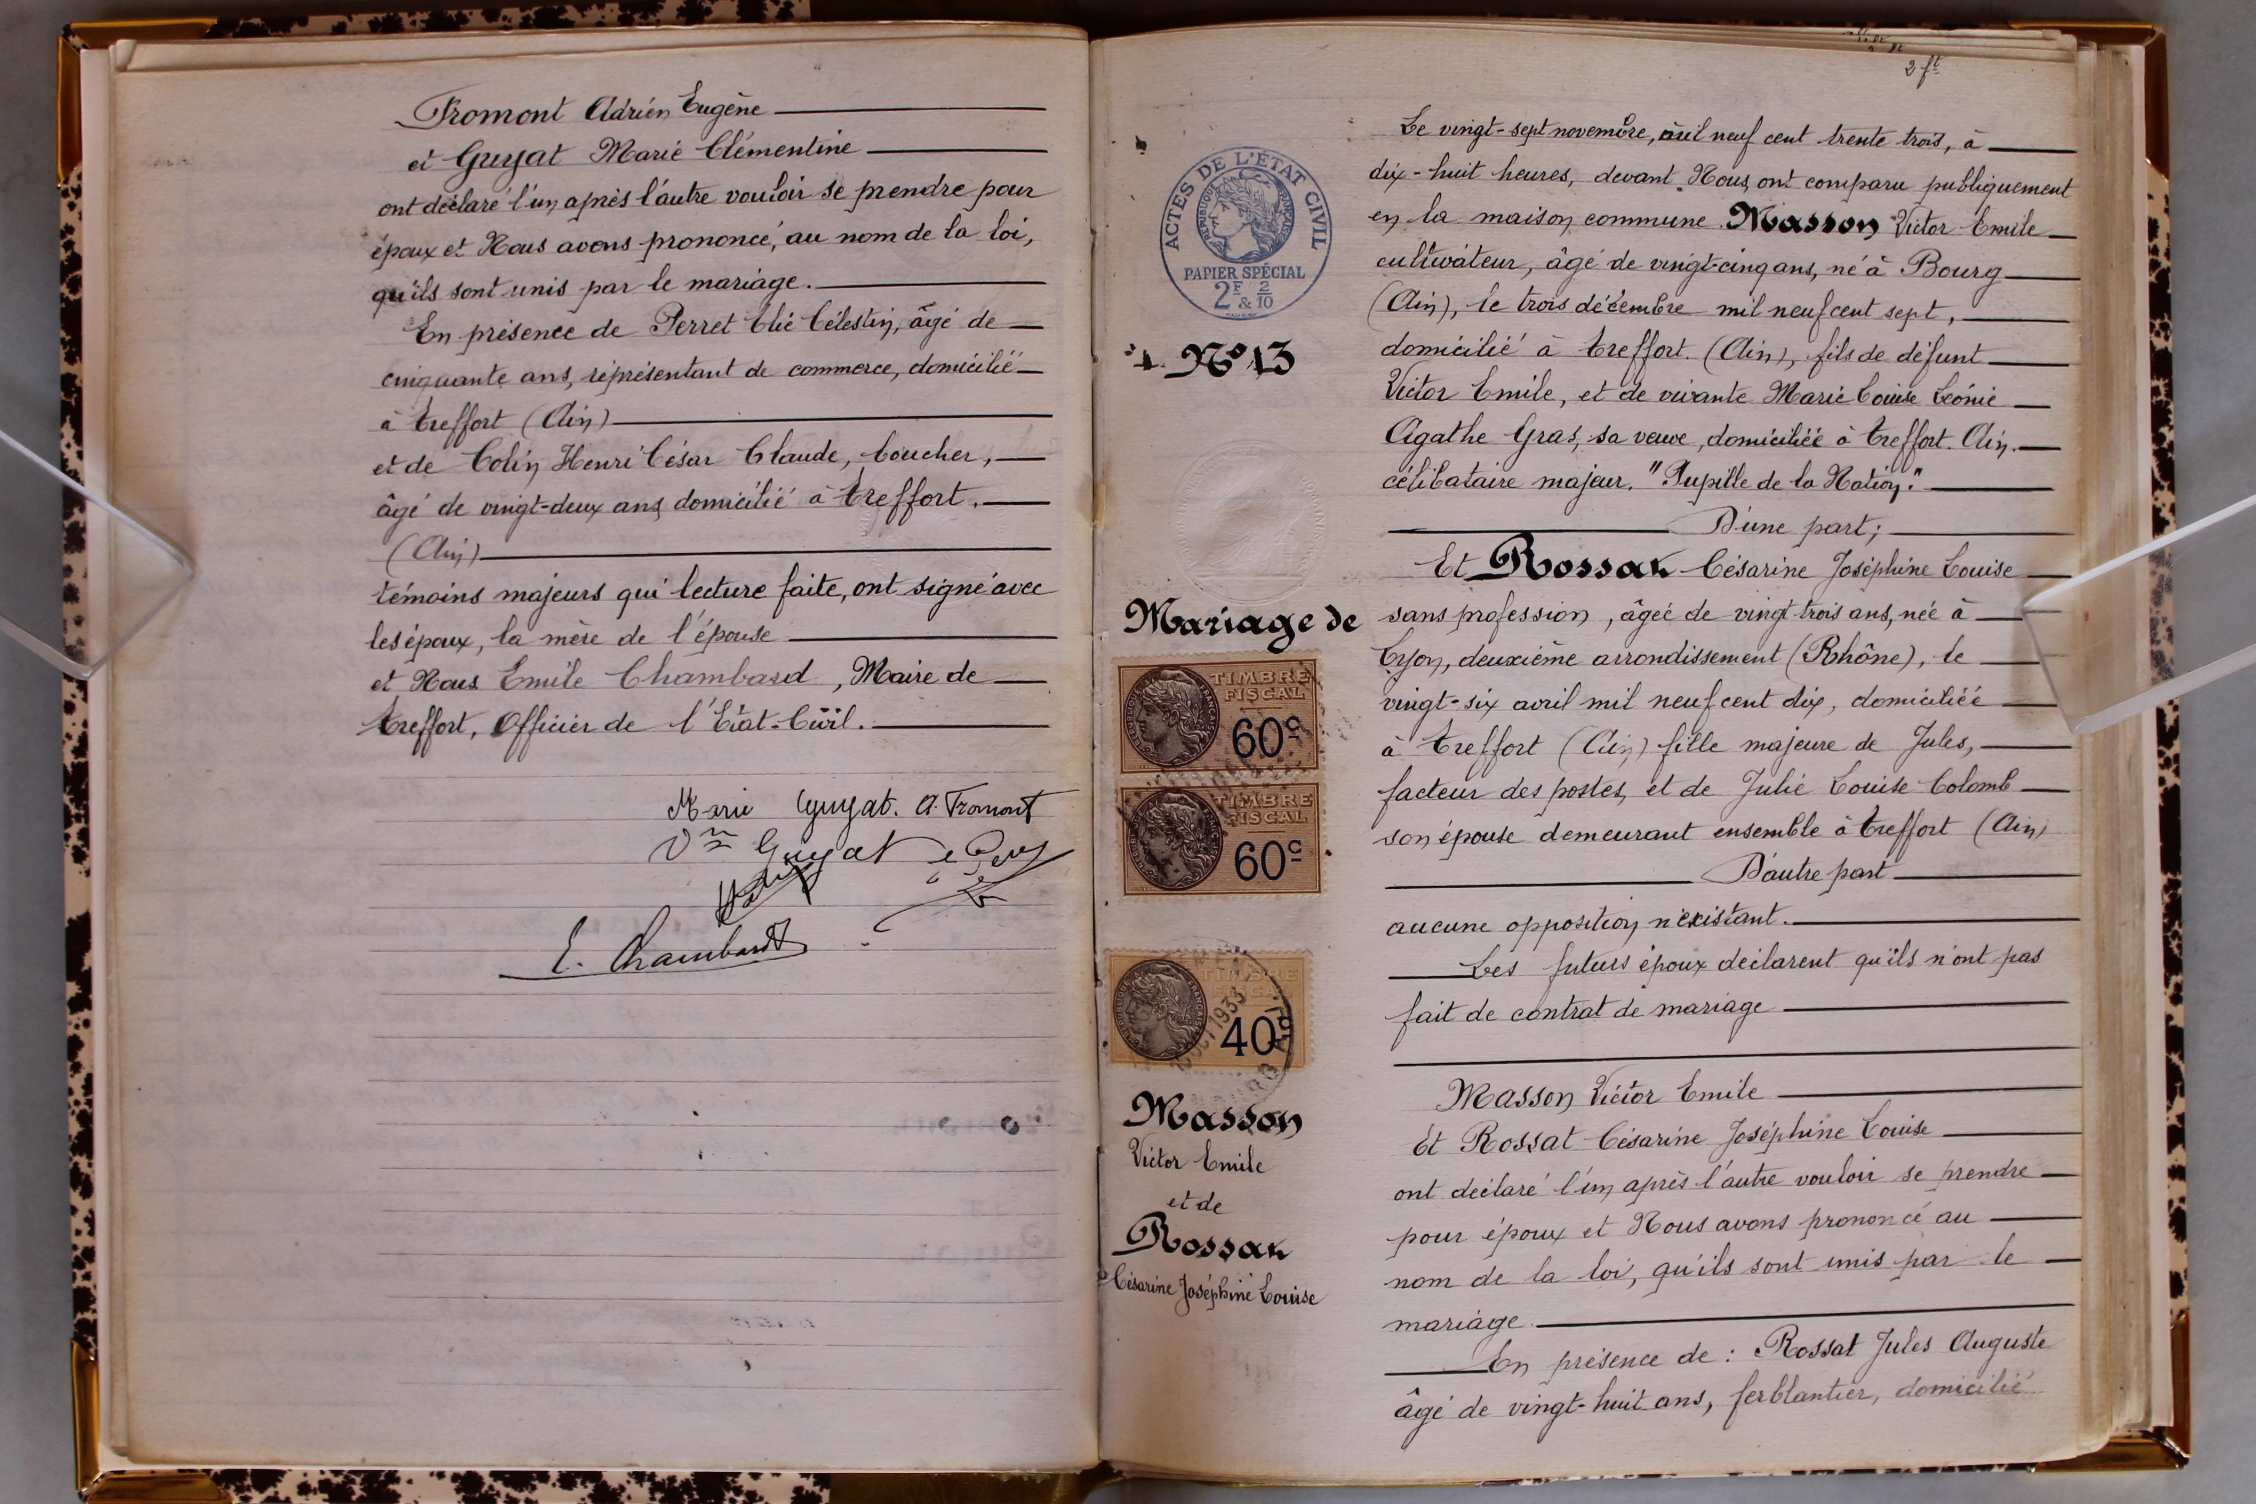 Fromont Adrien Eugène
et Guyat Marie Clémentine
ont déclaré l'un après l'autre vouloir se prendre pour
époux et Nous avons prononcé, au nom de la loi,
qu'ils sont unis par le mariage.
En présence de Perret Elie Célestin, âgé de
cinquante ans, représentant de commerce, domicilié
à Treffort (Ain)
et de Colin Henri César Claude, boucher,
âgé de vingt-deux ans domicilié à Treffort.
(Ain)
témoins majeurs qui lecture faite, ont signé avec
les époux, la mère de l'épouse
et Nous Emile Chambard, Maire de
Treffort, Officier de l'Etat-Civil.
Marie Guyat. A. Fromont
Vve Guyat
E. Chambard
2 ft
ACTES DE L'ÉTAT CIVIL
RÉPUBLIQUE FRANÇAISE
PAPIER SPÉCIAL
2F & 2/10
N° 13
Mariage de
TIMBRE
FISCAL
60c
TIMBRE
FISCAL
60c
TIMBRE
40c
1933
Masson
Victor Emile
et de
Rossat
Césarine Joséphine Louise
Le vingt-sept novembre, mil neuf cent trente trois, à
dix-huit heures, devant Nous, ont comparu publiquement
en la maison commune Masson Victor Emile
cultivateur, âgé de vingt-cinq ans, né à Bourg
(Ain), le trois décembre mil neuf cent sept,
domicilié à Treffort (Ain), fils de défunt
Victor Emile, et de vivante Marie Louise Léonie
Agathe Gras, sa veuve, domiciliée à Treffort. Ain.
célibataire majeur. "Pupille de la Nation."
D'une part;
Et Rossat Césarine Joséphine Louise
sans profession, âgée de vingt-trois ans, née à
Lyon, deuxième arrondissement (Rhône), le
vingt-six avril mil neuf cent dix, domiciliée
à Treffort (Ain) fille majeure de Jules,
facteur des postes, et de Julie Louise Colomb
son épouse demeurant ensemble à Treffort (Ain)
D'autre part
aucune opposition n'existant.
Les futurs époux déclarent qu'ils n'ont pas
fait de contrat de mariage
Masson Victor Emile
Et Rossat Césarine Joséphine Louise
ont déclaré l'un après l'autre vouloir se prendre
pour époux et Nous avons prononcé au
nom de la loi, qu'ils sont unis par le
mariage.
En présence de : Rossat Jules Auguste
âgé de vingt-huit ans, ferblantier, domicilié